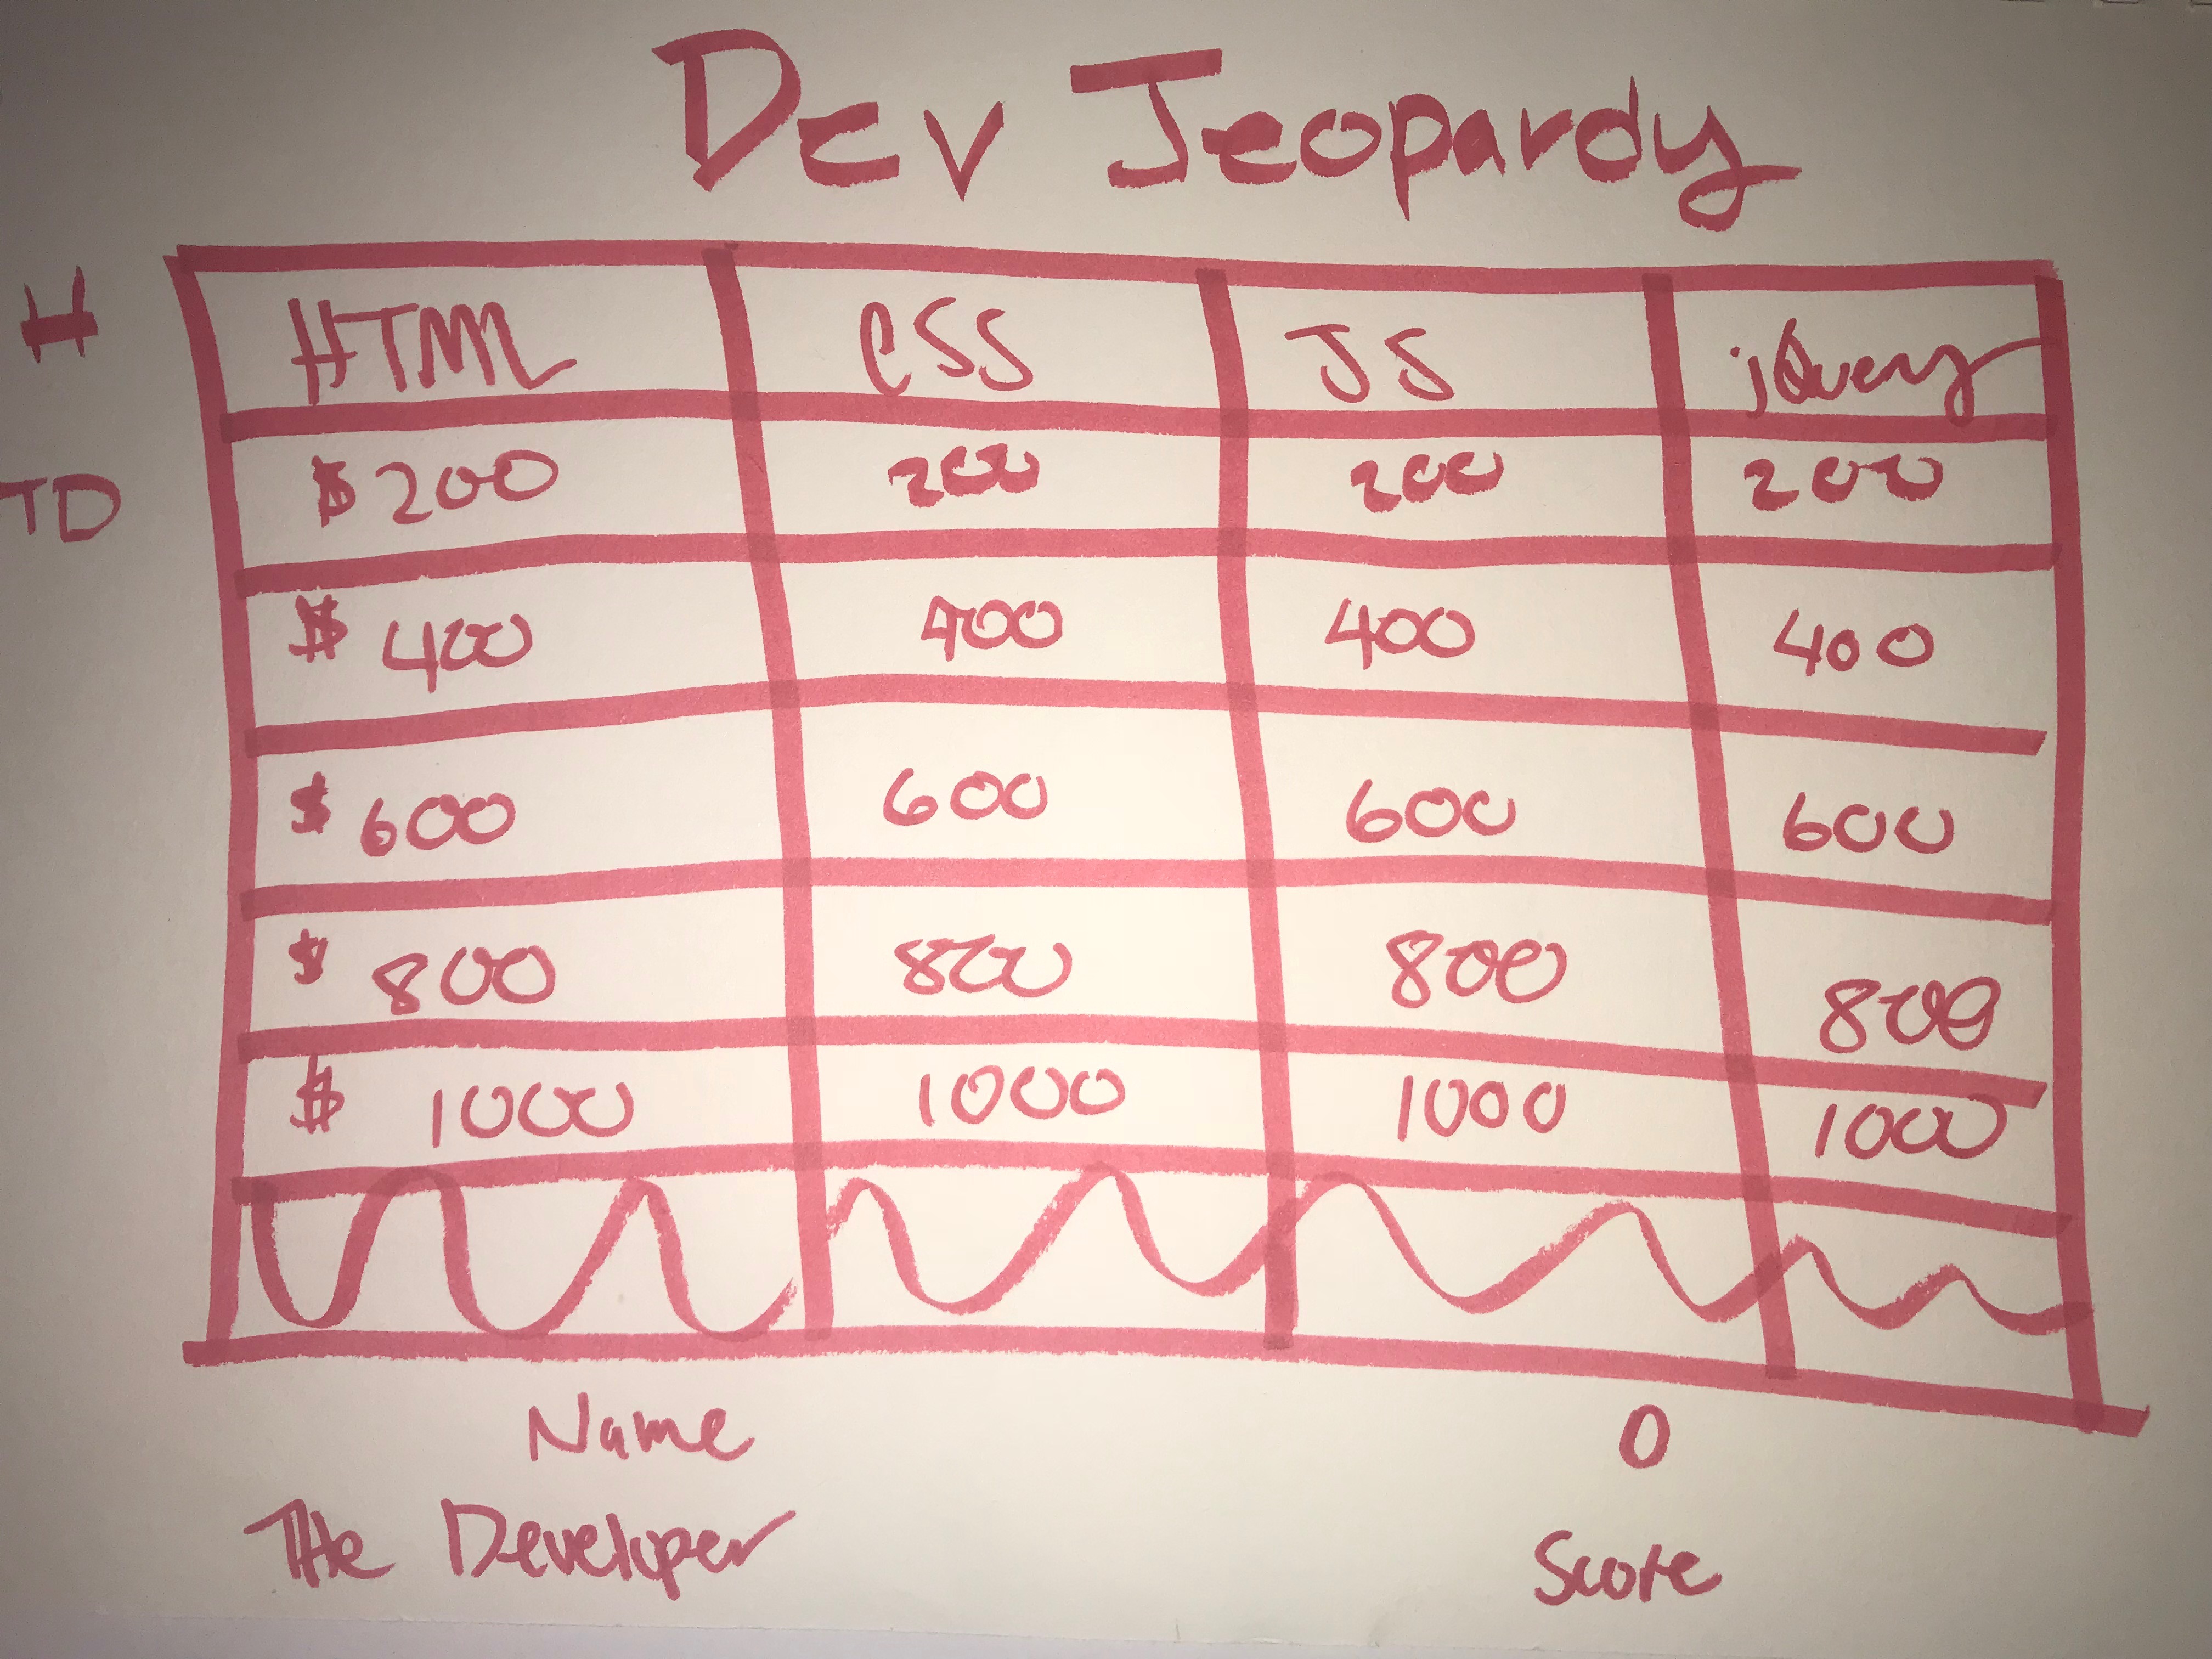 #
TD
Dev Jeopardy
HTML CSS JS jQuery
$200 200 200 200
$400 400 400 400
$600 600 600 600
$800 800 800 800
$1000 1000 1000 1000
Name 0
The Developer Score